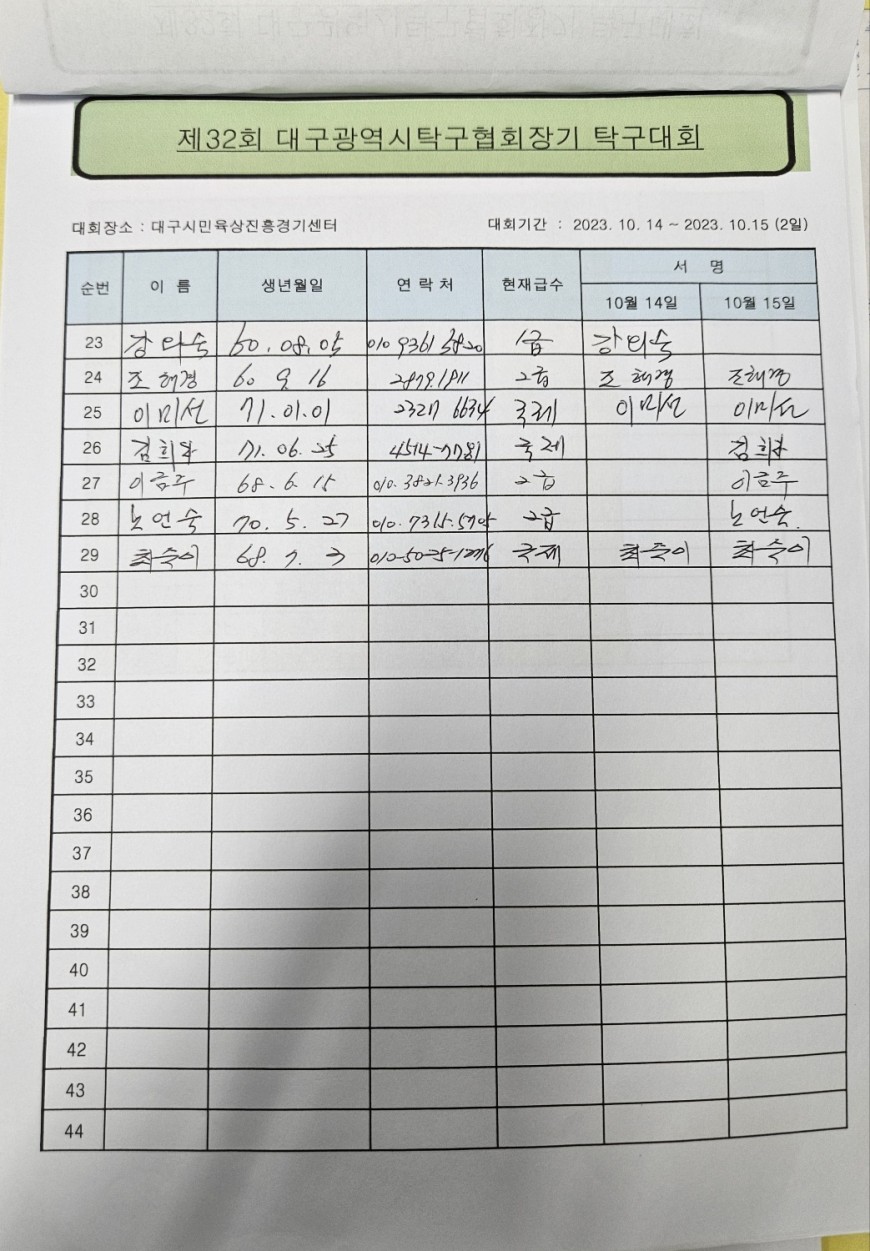 제32회 대구광역시탁구협회장기 탁구대회
대회장소 : 대구시민육상진흥경기센터 대회기간 : 2023. 10. 14 ~ 2023. 10.15 (2일)
순번 이 름 생년월일 연 락 처 현재급수 서 명
10월 14일 10월 15일
23 60.08.05 010 9361 3820 1급
24 조해경 60 9 16 2879.1811 2급 조해경 조해경
25 이미선 71.01.01 2327 6634 국제 이미선 이미선
26 71.06.25 4514-7781 국제
27 이금주 68.6.15 010.3821.3936 2급 이금주
28 노언숙 70.5.27 2급 노언숙
29 최숙이 68.7.3 국제 최숙이 최숙이
30
31
32
33
34
35
36
37
38
39
40
41
42
43
44